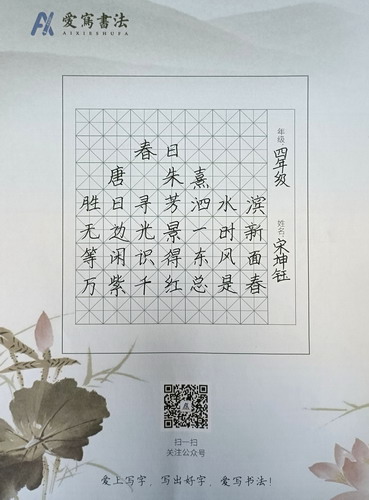 愛寫書法
AIXIESHUFA
春日
唐 朱熹
胜日寻芳泗水滨
无边光景一时新
等闲识得东风面
万紫千红总是春
年级 四年级
姓名 宋坤钰
扫一扫
关注公众号
爱上写字，写出好字，爱写书法！